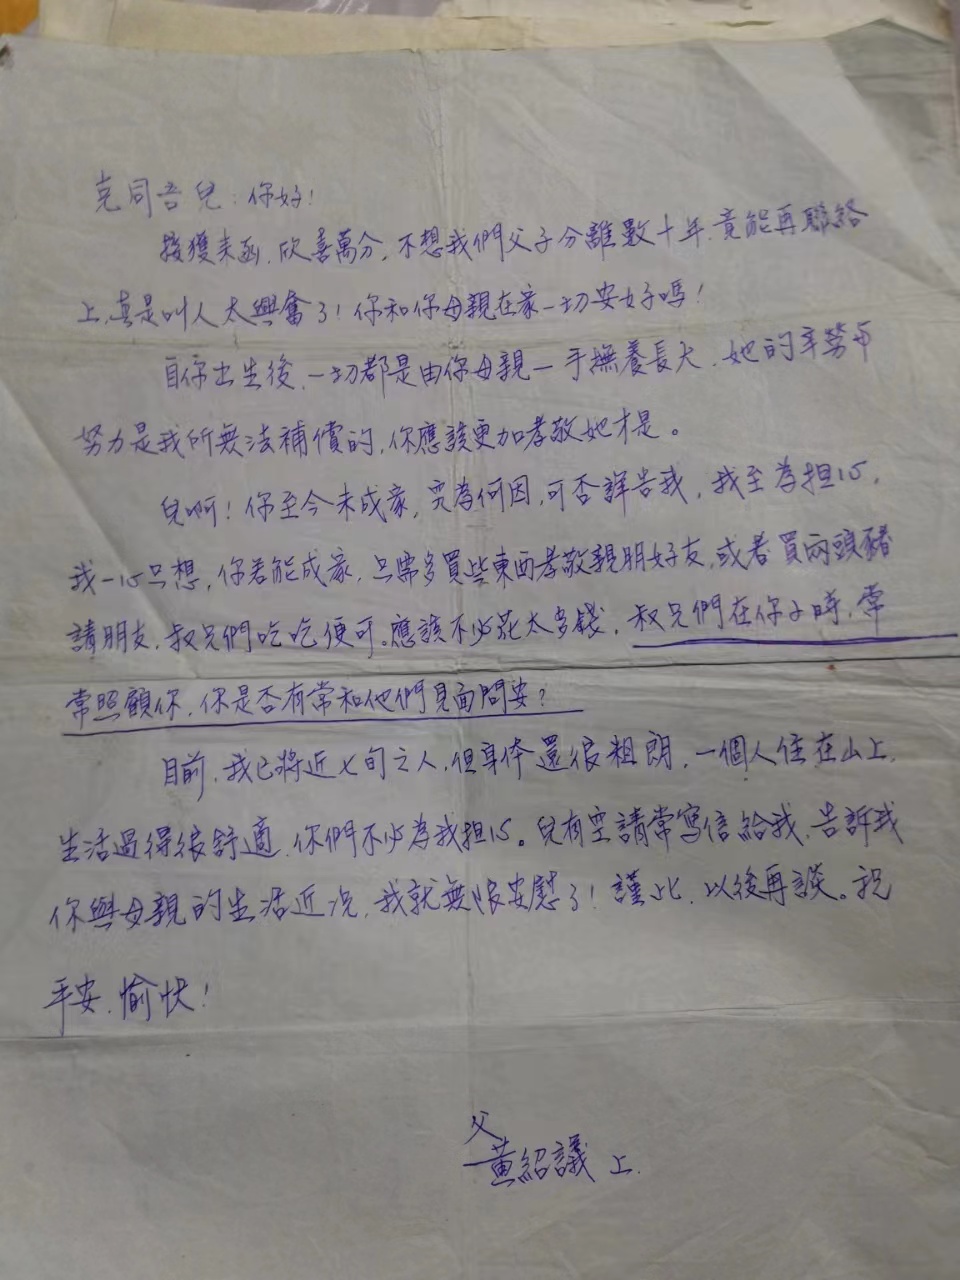 克同吾兒:你好!
接獲來函.欣喜萬分,不想我們父子分離數十年.竟能再聯絡
上,真是叫人太興奮了!你和你母親在家一切安好嗎!
自你出生後,一切都是由你母親一手撫養長大.她的辛勞和
努力是我所無法補償的,你應該更加孝敬她才是。
兒啊!你至今未成家,究為何因,可否詳告我,我至為担心,
我一心只想,你若能成家,只需多買些東西孝敬親朋好友,或者買兩頭豬
請朋友,叔兄們吃吃便可。應該不必花太多錢,叔兄們在你小時,常
常照顧你,你是否有常和他們見面問安?
目前,我已將近七旬之人,但身体還很粗朗,一個人住在山上,
生活過得很舒適.你們不必為我担心。兒有空請常寫信給我,告訴我
你與母親的生活近況,我就無限安慰了!謹此.以後再談。祝
平安.愉快!
父
黃紹議 上.